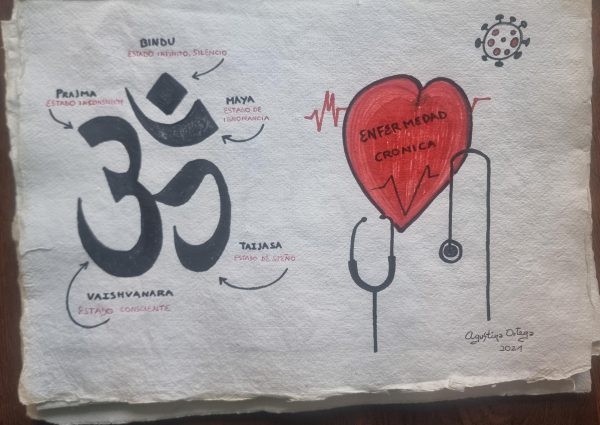 BINDU
ESTADO INFINITO, SILENCIO
PRAJMA
ESTADO INCONSCIENTE
MAYA
ESTADO DE
IGNORANCIA
ॐ
TAIJASA
ESTADO DE SUEÑO
VAISHVANARA
ESTADO CONSCIENTE
ENFERMEDAD
CRONICA
Agustina Ortega
2021